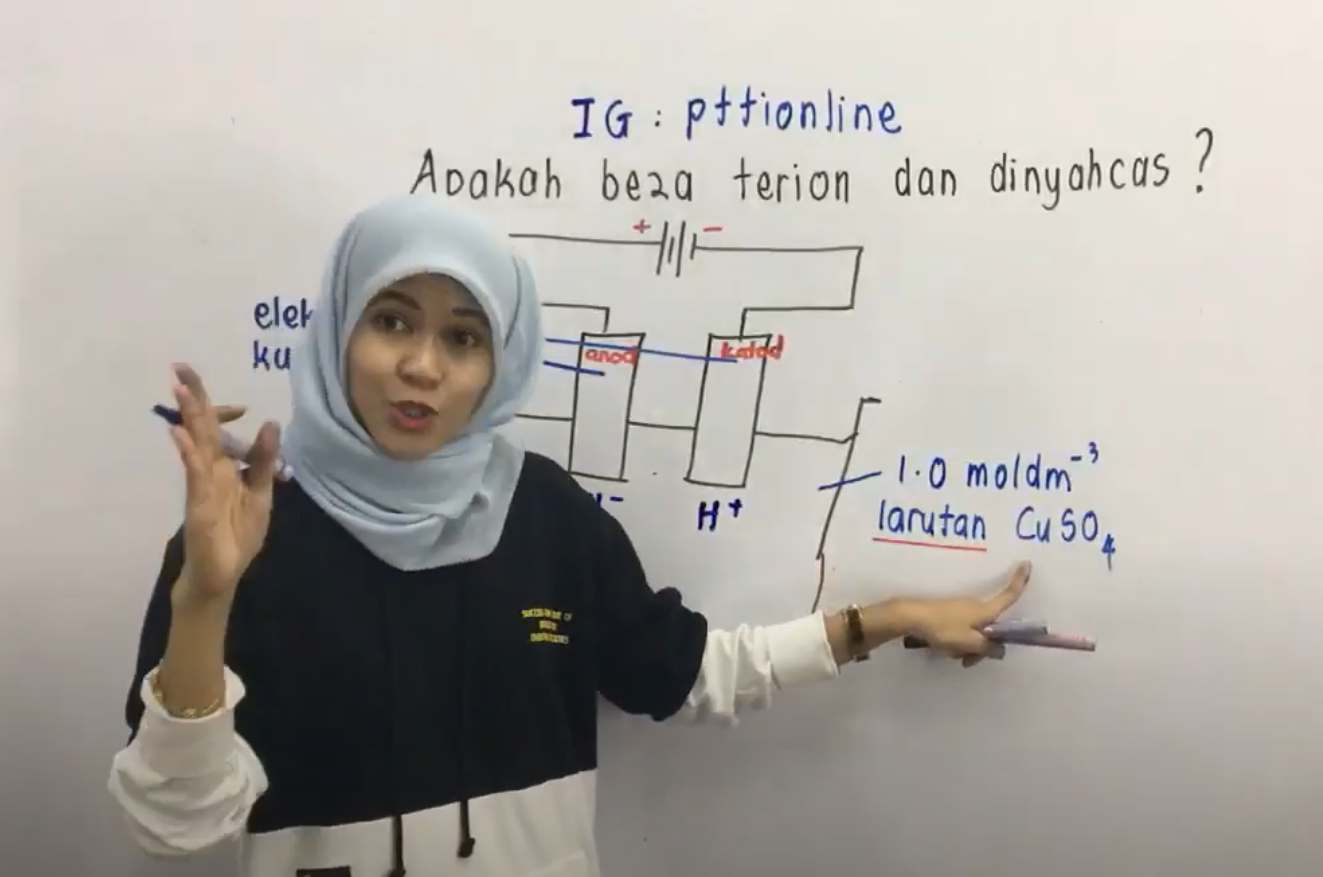 IG : pttionline
Apakah beza terion dan dinyahcas ?
+ -
elek
ku
anod
katod
1.0 moldm⁻³
larutan CuSO₄
H⁺